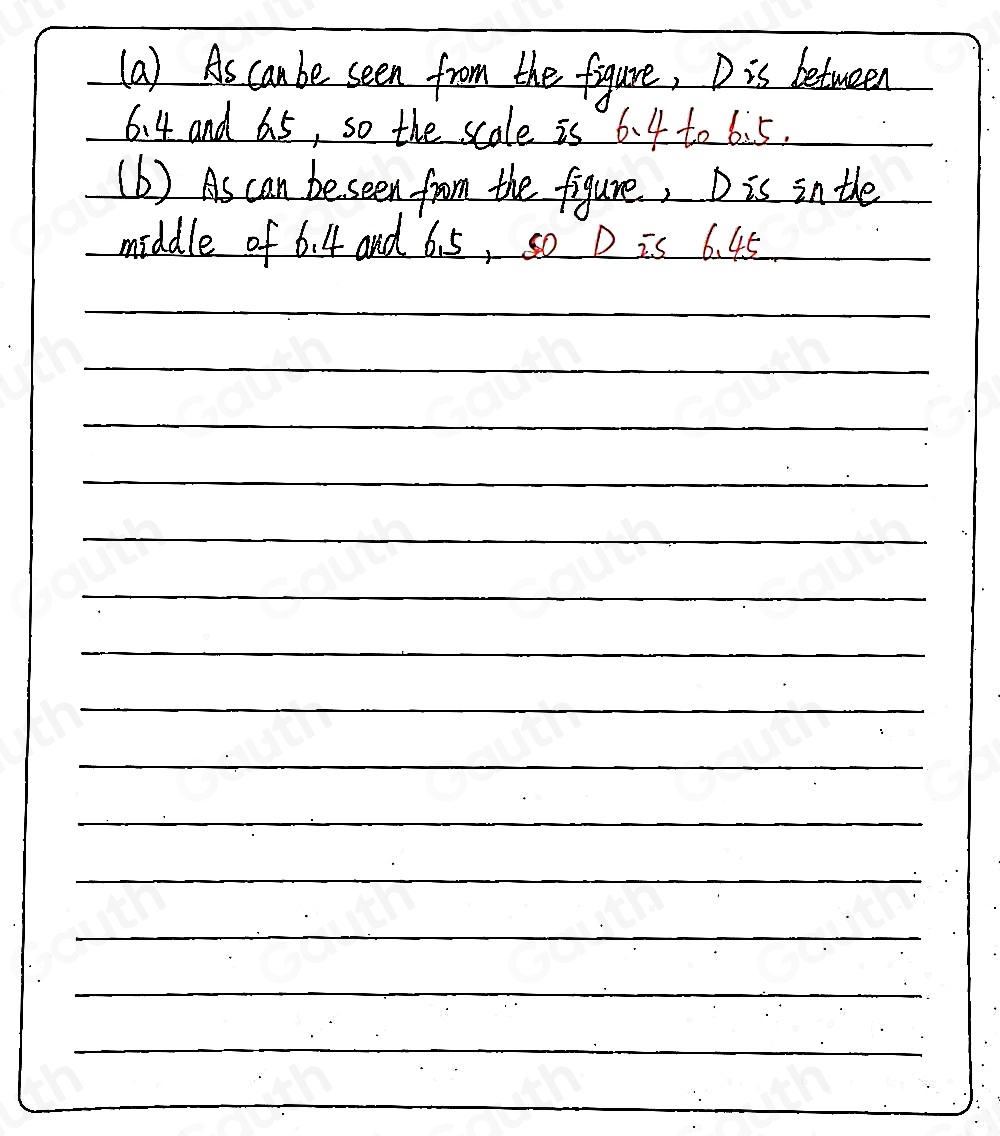 (a) As can be seen from the figure, D is between
6.4 and 6.5, so the scale is 6.4 to 6.5.
(b) As can be seen from the figure, D is in the
middle of 6.4 and 6.5, so D is 6.45.